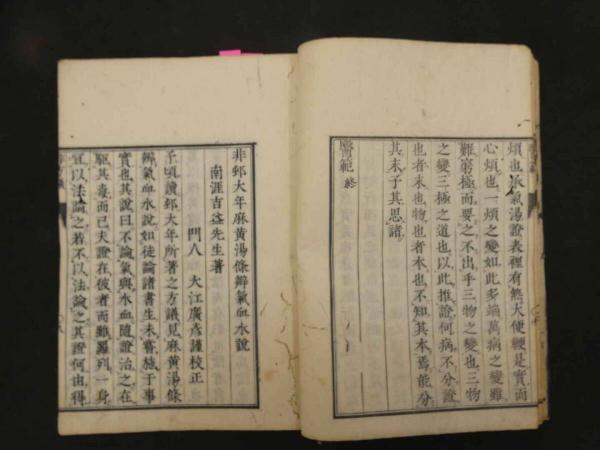 煩也承氣湯證表裡有無大便鞕是實而
心煩也一煩之變如此多端萬病之變雖
難窮極而要之不出乎三物之變也三物
之變三極之道也以此推證何病不分證
也者末也物也者本也不知其本焉能分
其末子其思諸
醫範終
非邨大年麻黃湯條辯氣血水說
南涯吉益先生著
門人 大江廣彥謹校正
予頃讀邨大年所著之方議見麻黃湯條
辨氣血水說如徒論諸書生未嘗施于事
實也其說曰不論氣與水血隨證治之在
驅其毒而已夫證在彼者而雖羅列一身
宜以法論之若不以法論之其證何由得